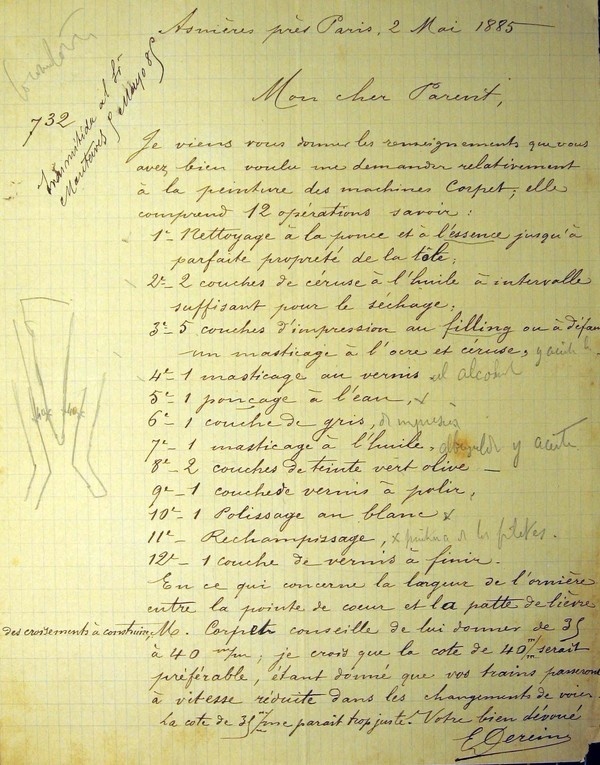 Asnières près Paris, 2 Mai 1885
732
Mon cher Parent,
Je viens vous donner les renseignements que vous
avez bien voulu me demander relativement
à la peinture des machines Corpet; elle
comprend 12 opérations savoir:
1º- Nettoyage à la ponce et à l'essence jusqu'à
parfaite propreté de la tôle;
2º- 2 couches de céruse à l'huile à intervalle
suffisant pour le séchage;
3º- 5 couches d'impression au filling ou à défau
un masticage à l'ocre et céruse,
4º- 1 masticage au vernis al alcool
5º- 1 ponçage à l'eau, x
6º- 1 couche de gris,
7º- 1 masticage à l'huile, y aceite
8º- 2 couches de teinte vert olive -
9º- 1 couche de vernis à polir,
10º- 1 Polissage au blanc x
11º- Rechampissage, x de los filetes.
12º- 1 couche de vernis à finir.
En ce qui concerne la largeur de l'ornière
entre la pointe de coeur et la patte de lièvre
des croisements à construire, M. Corpet conseille de lui donner de 35
à 40 m/m; je crois que la cote de 40 m/m serait
préférable, étant donné que vos trains passeront
à vitesse réduite dans les changements de voies.
La cote de 35 m/m me parait trop juste. Votre bien dévoué